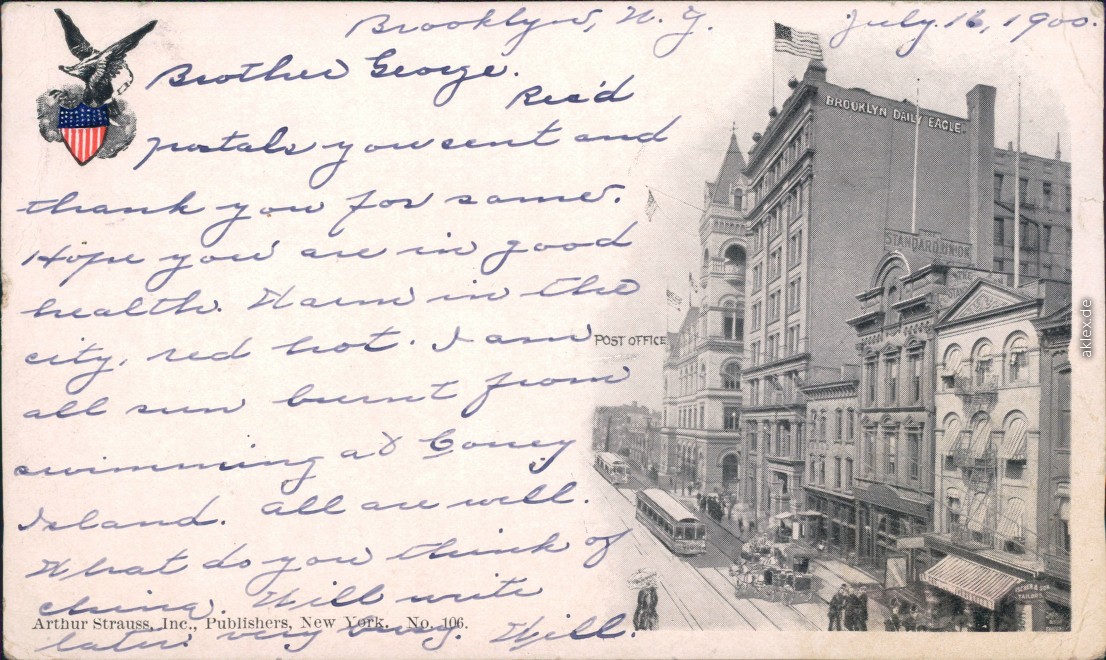 Brooklyn, N. Y. July. 16, 1900.
Brother George.
Rec'd
postals you sent and
thank you for same.
Hope you are in good
health. Warm in the
city, red hot. I am
all sun burnt from
swimming at Coney
Island. all are well.
What do you think of
china. Will write
later very busy. Will.
BROOKLYN DAILY EAGLE
STANDARD UNION
THE
POST OFFICE
TAILORS
Arthur Strauss, Inc., Publishers, New York. No. 106.
aklex.de